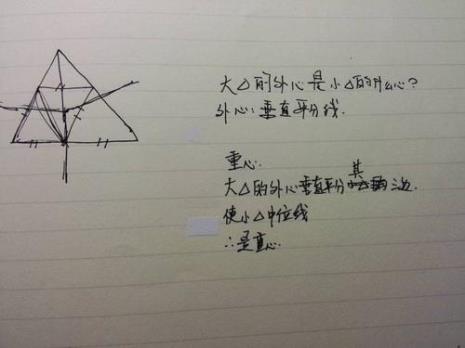 大△的外心是小△的什么心?
外心:垂直平分线.
重心.
其
大△的外心垂直平分 三边.
使小△中位线
∴是重心.